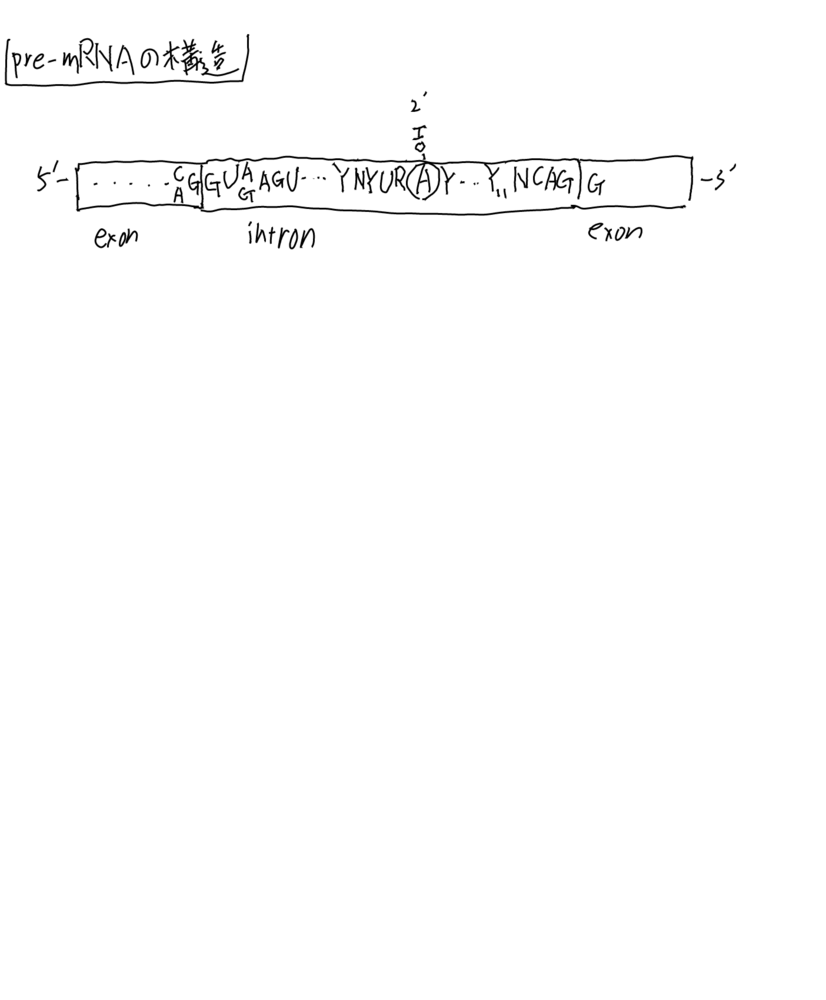 pre-mRNAの構造
2'
HO
5'- ・・・・・CAGGUAGAGU・・・YNYURAY・・Y11NCAGG -3'
exon intron exon